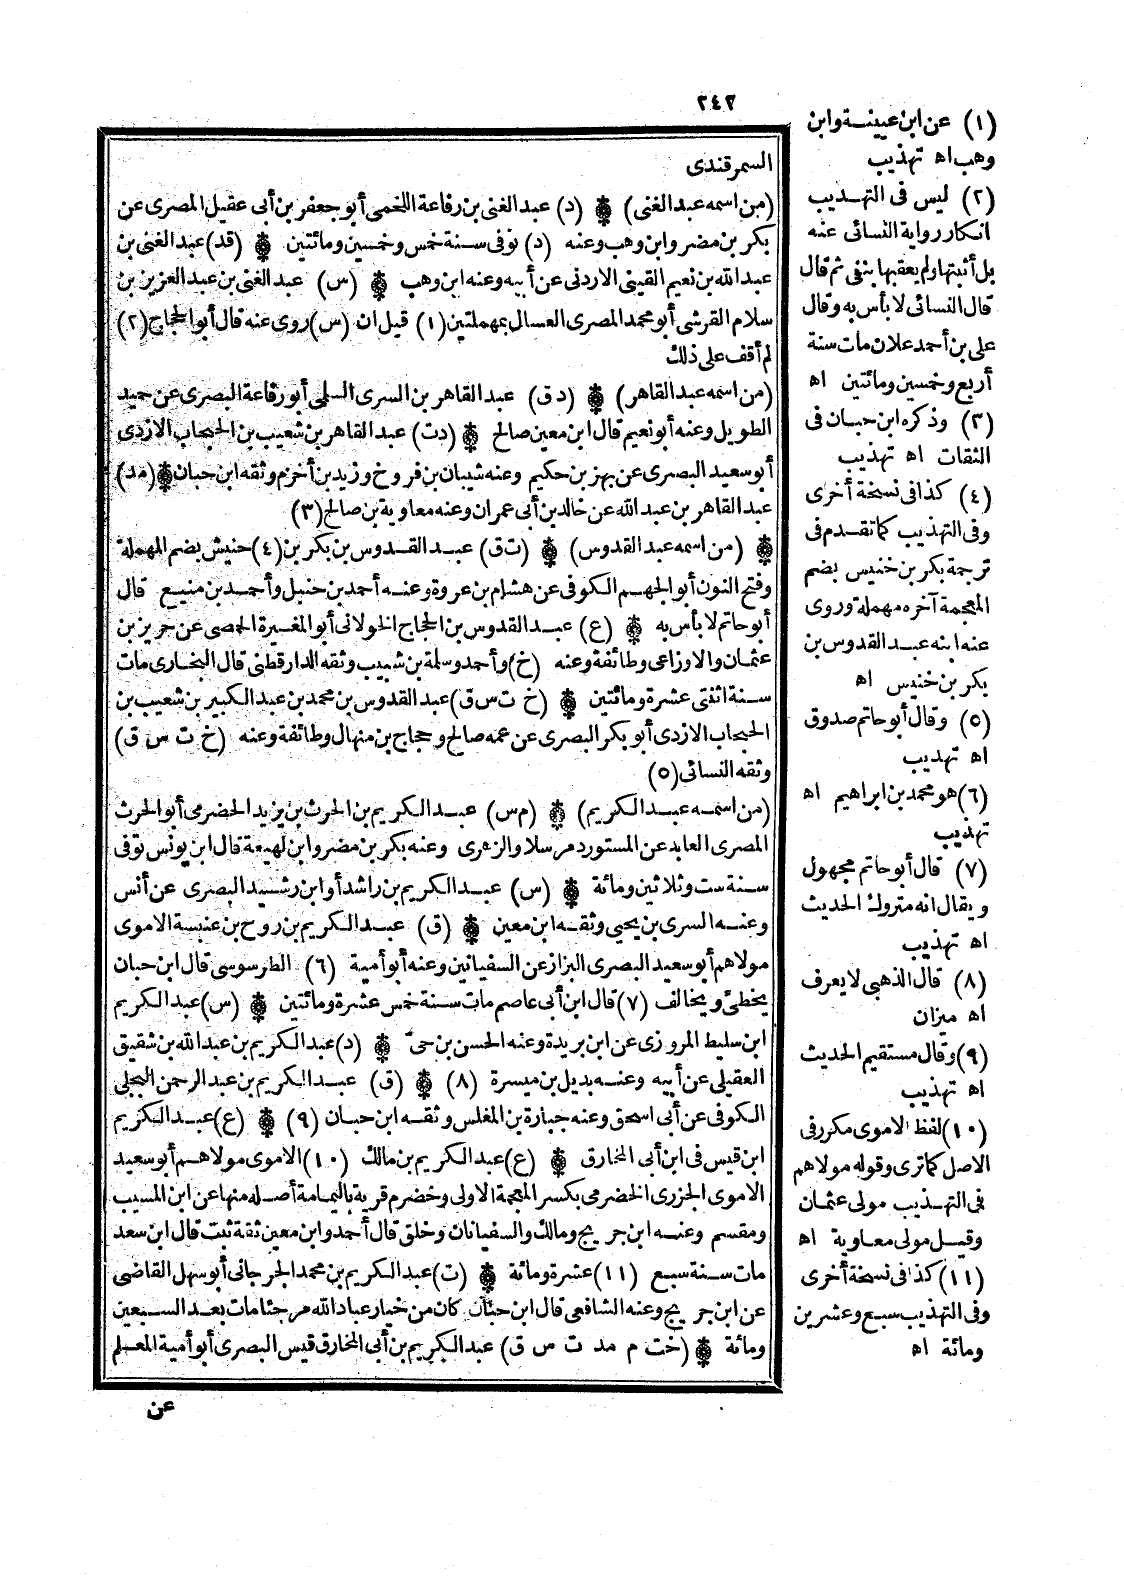 ٢٤٢
السمرقندى
(من اسمه عبد الغنى) (د) عبد الغنى بن رفاعة اللخمى أبو جعفر بن أبى عقيل المصرى عن
بكر بن مضر وابن وهب وعنه (د) توفى سنة خمس وخمسين ومائتين (قد) عبد الغنى بن
عبد الله بن نعيم القينى الاردنى عن أبيه وعنه ابن وهب (س) عبد الغنى بن عبد العزيز بن
سلام القرشى أبو محمد المصرى العسال بمهملتين (١) قيل ان (س) روى عنه قال أبو الحجاج (٢)
لم أقف على ذلك
(من اسمه عبد القاهر) (د ق) عبد القاهر بن السرى السلمى أبو رفاعة البصرى عن حميد
الطويل وعنه أبو نعيم قال ابن معين صالح (دت) عبد القاهر بن شعيب بن الحبحاب الازدى
أبو سعيد البصرى عن بهز بن حكيم وعنه شيبان بن فروخ وزيد بن أخزم وثقه ابن حبان (مد)
عبد القاهر بن عبد الله عن خالد بن أبى عمران وعنه معاوية بن صالح (٣)
(من اسمه عبد القدوس) (ت ق) عبد القدوس بن بكر بن (٤) حنيش بضم المهملة
وفتح النون أبو الجهم الكوفى عن هشام بن عروة وعنه أحمد بن حنبل وأحمد بن منيع قال
أبو حاتم لا بأس به (ع) عبد القدوس بن الحجاج الخولانى أبو المغيرة الحمصى عن حريز بن
عثمان والاوزاعى وطائفة وعنه (خ) وأحمد وسلمة بن شبيب وثقه الدارقطنى قال البخارى مات
سنة اثنتى عشرة ومائتين (خ ت س ق) عبد القدوس بن محمد بن عبد الكبير بن شعيب بن
الحبحاب الازدى أبو بكر البصرى عن عمه صالح وحجاج بن منهال وطائفة وعنه (خ ت س ق)
وثقه النسائى (٥)
(من اسمه عبد الكريم) (م س) عبد الكريم بن الحرث بن يزيد الحضرمى أبو الحرث
المصرى العابد عن المستورد مرسلا والزهرى وعنه بكر بن مضر وابن لهيعة قال ابن يونس توفى
سنة ست وثلاثين ومائة (س) عبد الكريم بن راشد أو ابن رشيد البصرى عن أنس
وعنه السرى بن يحيى وثقه ابن معين (ق) عبد الكريم بن روح بن عنبسة الاموى
مولاهم أبو سعيد البصرى البزاز عن السفيانين وعنه أبو أمية (٦) الطرسوسى قال ابن حبان
يخطئ ويخالف (٧) قال ابن أبى عاصم مات سنة خمس عشرة ومائتين (س) عبد الكريم
ابن سليط المروزى عن ابن بريدة وعنه الحسن بن حى (د) عبد الكريم بن عبد الله بن شقيق
العقيلى عن أبيه وعنه بديل بن ميسرة (٨) (ق) عبد الكريم بن عبد الرحمن البجلى
الكوفى عن أبى اسحق وعنه جبارة بن المغلس وثقه ابن حبان (٩) (ع) عبد الكريم
ابن قيس فى ابن أبى المخارق (ع) عبد الكريم بن مالك (١٠) الاموى مولاهم أبو سعيد
الاموى الجزرى الخضرمى بكسر المعجمة الاولى وخضرم قرية باليمامة أصله منها عن ابن المسيب
ومقسم وعنه ابن جريج ومالك والسفيانان وخلق قال أحمد وابن معين ثقة ثبت قال ابن سعد
مات سنة سبع (١١) عشرة ومائة (ت) عبد الكريم بن محمد الجرجانى أبو سهل القاضى
عن ابن جريج وعنه الشافعى قال ابن حبان كان من خيار عباد الله مرجئا مات بعد السبعين
ومائة (خت م مد ت س ق) عبد الكريم بن أبى المخارق قيس البصرى أبو أمية المعلم
عن
(١) عن ابن عيينة وابن
وهب اه تهذيب
(٢) ليس فى التهذيب
انكار رواية النسائى عنه
بل أثبتها ولم يعقبها بنفى ثم قال
قال النسائى لا بأس به وقال
على بن أحمد علان مات سنة
أربع وخمسين ومائتين اه
(٣) وذكره ابن حبان فى
الثقات اه تهذيب
(٤) كذا فى نسخة أخرى
وفى التهذيب كما تقدم فى
ترجمة بكر بن خنيس بضم
المعجمة آخره مهملة وروى
عنه ابنه عبد القدوس بن
بكر بن خنيس اه
(٥) وقال أبو حاتم صدوق
اه تهذيب
(٦) هو محمد بن ابراهيم اه
تهذيب
(٧) قال أبو حاتم مجهول
ويقال انه متروك الحديث
اه تهذيب
(٨) قال الذهبى لا يعرف
اه ميزان
(٩) وقال مستقيم الحديث
اه تهذيب
(١٠) لفظ الاموى مكرر فى
الاصل كما ترى وقوله مولاهم
فى التهذيب مولى عثمان
وقيل مولى معاوية اه
(١١) كذا فى نسخة أخرى
وفى التهذيب سبع وعشرين
ومائة اه